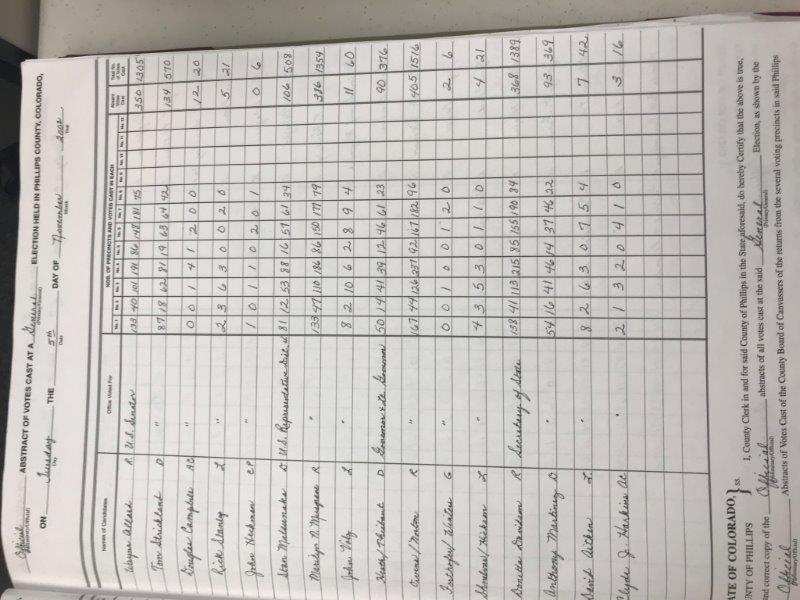 Official
ABSTRACT OF VOTES CAST AT A General ELECTION HELD IN PHILLIPS COUNTY, COLORADO,
(Primary/General)
ON Tuesday THE 5th DAY OF November 2002
Day Date Month Year
Names of Candidates Office Voted For NOS. OF PRECINCTS AND VOTES CAST IN EACH
No. 1 No. 2 No. 3 No. 4 No. 5 No. 6 No. 7 No. 8
Wayne Allard R U.S. Senator 133 40 101 191 86 148 181 75 350 1305
Tom Strickland D " 87 18 62 81 19 63 64 42 134 570
Douglas Campbell AC " 0 0 1 4 1 2 0 0 12 20
Rick Stanley L " 2 3 6 3 0 0 2 0 5 21
John Heckman C.P. " 1 0 1 1 0 2 0 1 0 6
Stan Matsunaka D U.S. Representative Dist. 4 81 12 53 88 16 57 61 34 106 508
Marilyn N. Musgrave R " 133 47 110 186 86 150 177 79 386 1354
John Volz L " 8 2 10 6 2 8 9 4 11 60
Heath/Thibaut D Governor & Lt. Governor 50 14 41 39 12 46 61 23 90 376
Owens/Norton R " 167 44 126 237 92 167 182 96 405 1516
Winters G " 0 0 1 0 0 1 2 0 2 6
L " 4 3 5 3 0 1 1 0 4 21
Donetta Davidson R Secretary of State 138 41 113 215 85 155 190 84 368 1389
Anthony Martinez D " 54 16 41 46 14 37 46 22 93 369
David Aitken L " 8 2 6 3 0 7 5 4 7 42
Clyde J. Harkins AC " 2 1 3 2 0 4 1 0 3 16
ATE OF COLORADO,
NTY OF PHILLIPS } ss. I, County Clerk in and for said County of Phillips in the State aforesaid, do hereby Certify that the above is true,
nd correct copy of the Official abstracts of all votes cast at the said General Election, as shown by the
(Primary/General)
Official Abstracts of Votes Cast of the County Board of Canvassers of the returns from the several voting precincts in said Phillips